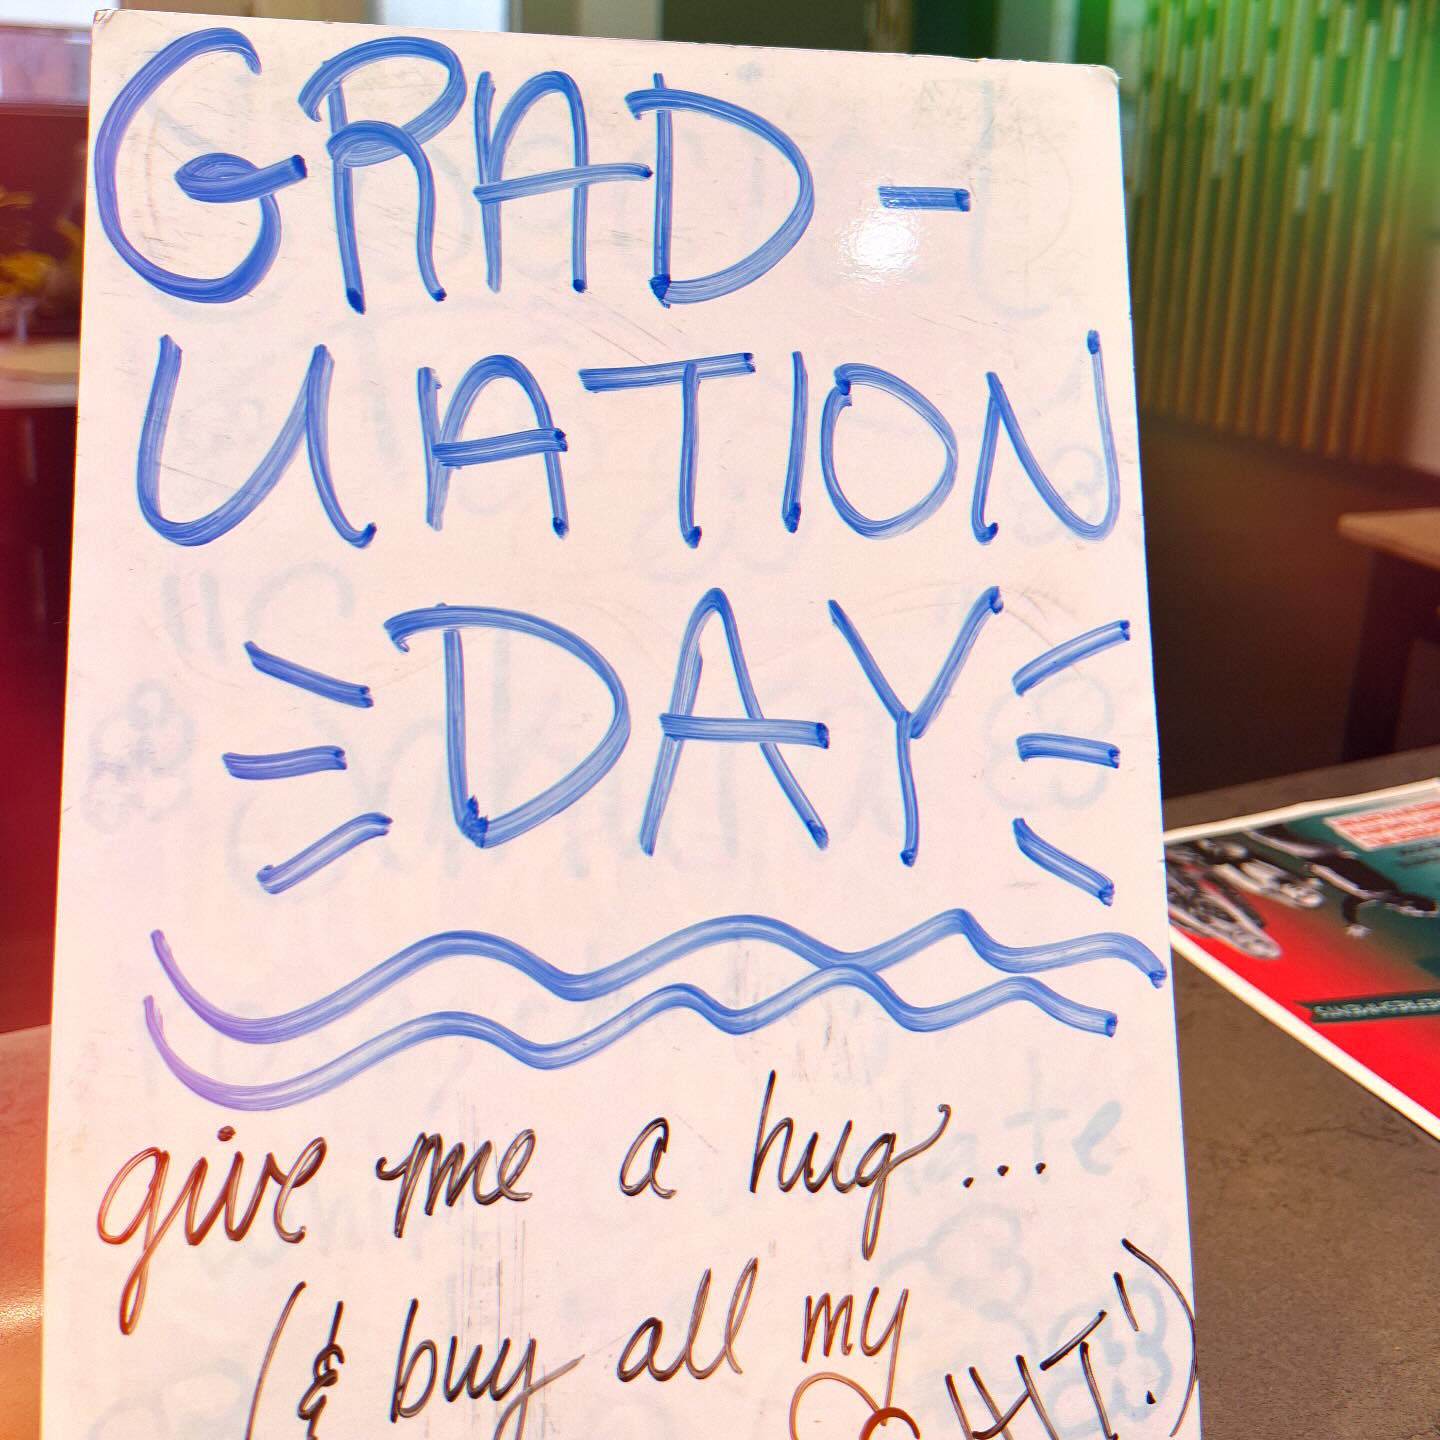 GRAD-
UATION
DAY
give me a hug...
(& buy all my
SHIT!)